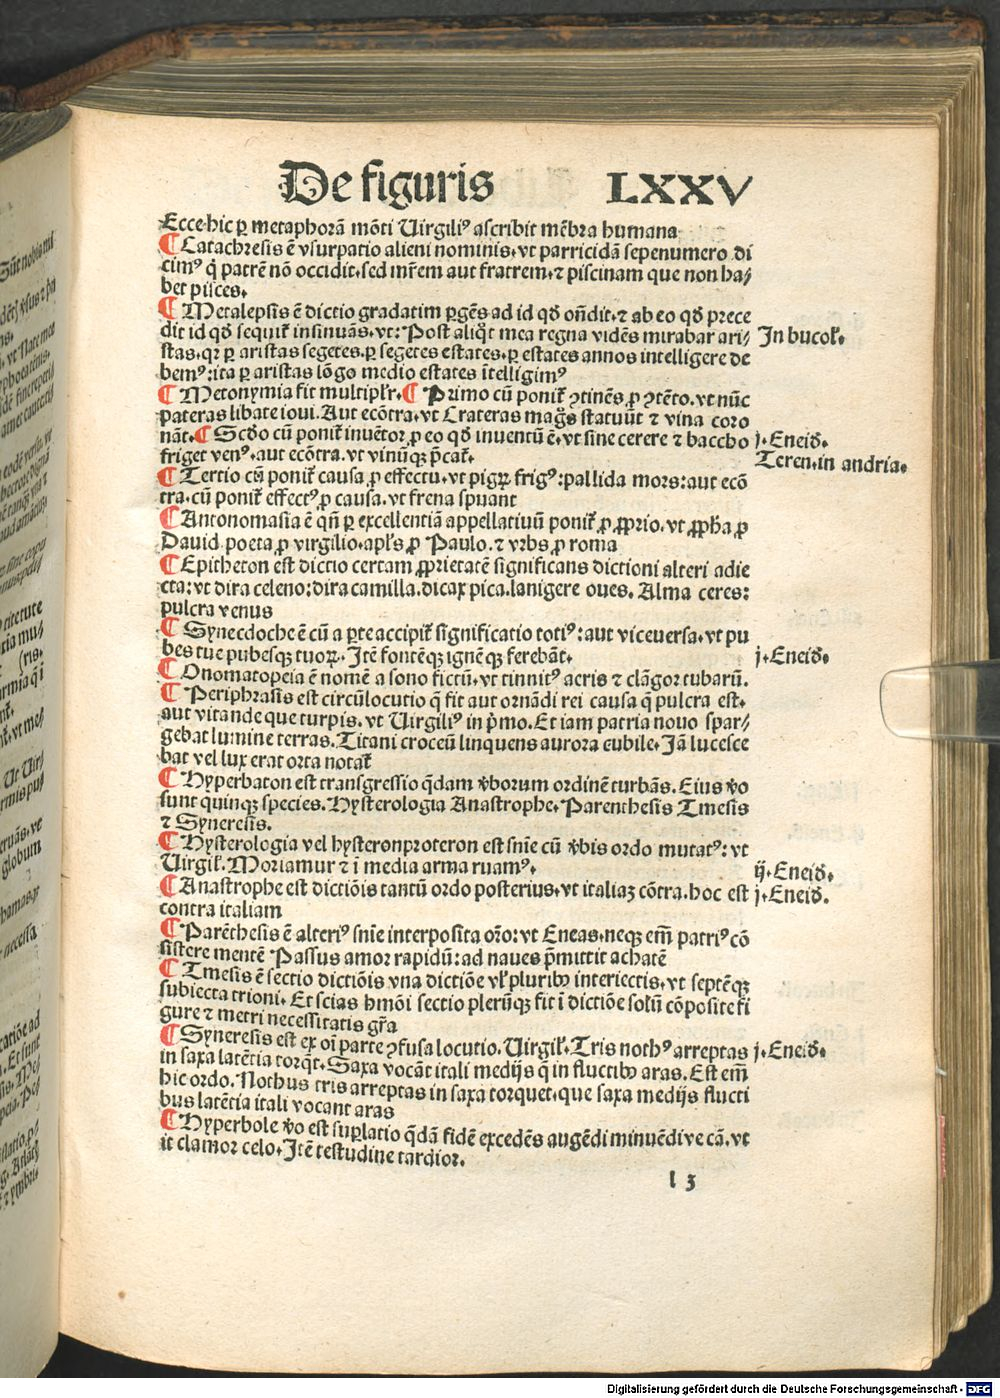 De figuris LXXV
Ecce hic ꝑ metaphorā mōti Uirgiliꝰ ascribit mēbra humana
¶ Catachresis ē vsurpatio alieni nominis. vt parricidā sepenumero di
cimꝰ q̇ patrē nō occidit. sed mr̄em aut fratrem. ⁊ piscinam que non ha⸗
bet pisces.
¶ Metalepsis ē dictio gradatim ꝑgēs ad id qd̓ on̄dit. ⁊ ab eo qd̓ prece
dit id qd̓ sequit᷑ insinuās. vt: Post aliq̇t mea regna vidēs mirabar ari⸗ In bucol̓.
stas. qr ꝑ aristas segetes. ꝑ segetes estates. ꝑ estates annos intelligere de
bemꝰ: ita ꝑ aristas lōgo medio estates ītelligimꝰ
¶ Metonymia fit multipl̓r. ¶ Primo cū ponit᷑ ꝯtinēs ꝓ ꝯtēto. vt nūc
pateras libate ioui. Aut ecōtra. vt Crateras mag̓s statuūt ⁊ vina coro
nāt. ¶ Scd̓o cū ponit᷑ inuētor ꝓ eo qd̓ inuentū ē. vt sine cerere ⁊ baccho j. Eneid̓.
friget venꝰ. aut ecōtra. vt vinūqꝫ p̄cat᷑. Teren. in andria.
¶ Tertio cū ponit᷑ causa ꝓ effectu. vt pigꝝ frigꝰ: pallida mors: aut ecō
tra. cū ponit᷑ effectꝰ ꝓ causa. vt frena spuant
¶ Antonomasia ē qn̄ ꝑ excellentiā appellatiuū ponit᷑ ꝓ ꝓprio. vt ꝓpha ꝓ
Dauid poeta ꝓ virgilio. apl̓s ꝓ Paulo. ⁊ vrbs ꝓ roma
¶ Epitheton est dictio certam ꝓprietatē significans dictioni alteri adie
cta: vt dira celeno: dira camilla. dicax pica. lanigere oues. Alma ceres:
pulcra venus
¶ Synecdoche ē cū a ꝑte accipit᷑ significatio totiꝰ: aut viceuersa. vt pu
bes tue pubesqꝫ tuoꝝ. Itē fontēqꝫ ignēqꝫ ferebāt. j. Eneid̓.
¶ Onomatopeia ē nomē a sono fictū. vt tinnitꝰ aeris ⁊ clāgor tubarū.
¶ Periphrasis est circūlocutio q̄ fit aut ornādi rei causa q̄ pulcra est.
aut vitande que turpis. vt Uirgiliꝰ in p̓mo. Et iam patria nouo spar⸗
gebat lumine terras. Titani croceū linquens aurora cubile. Jā lucesce
bat vel lux erat orta notat᷑
¶ Hyperbaton est transgressio q̄dam v̓borum ordinē turbās. Eius v̓o
sunt quinqꝫ species. Hysterologia Anastrophe. Parenthesis Tmesis
⁊ Syneresis.
¶ Hysterologia vel hysteronproteron est sn̄ie cū v̓bis ordo mutatꝰ: vt
Uirgil̓. Moriamur ⁊ ī media arma ruamꝰ. ij. Eneid̓.
¶ Anastrophe est dictiōis tantū ordo posterius. vt italiaꝫ cōtra. hoc est j. Eneid̓.
contra italiam
¶ Parēthesis ē alteriꝰ sn̄ie interposita or̄o: vt Eneas. neqꝫ em̄ patriꝰ cō
sistere mentē Passus amor rapidū: ad naues p̄mittit achatē
¶ Tmesis ē sectio dictiōis vna dictiōe vl̓ pluribꝰ interiectis. vt septēqꝫ
subiecta trioni. Et scias hmōi sectio plerūqꝫ fit ī dictiōe solū cōposite fi
gure ⁊ metri necessitatis gr̄a
¶ Syneresis est ex oī parte ꝯfusa locutio. Uirgil̓. Tris nothꝰ arreptas j. Eneid̓.
in saxa latētia torq̄t. Saxa vocāt itali medijs q̄ in fluctibꝰ aras. Est em̄
hic ordo. Nothus tris arreptas in saxa torquet. que saxa medijs flucti
bus latētia itali vocant aras
¶ Hyperbole v̓o est suꝑlatio q̄dā fidē excedēs augēdi minuēdive cā. vt
it clamor celo. Itē testudine tardior.
l 3
Digitalisierung gefördert durch die Deutsche Forschungsgemeinschaft - DFG